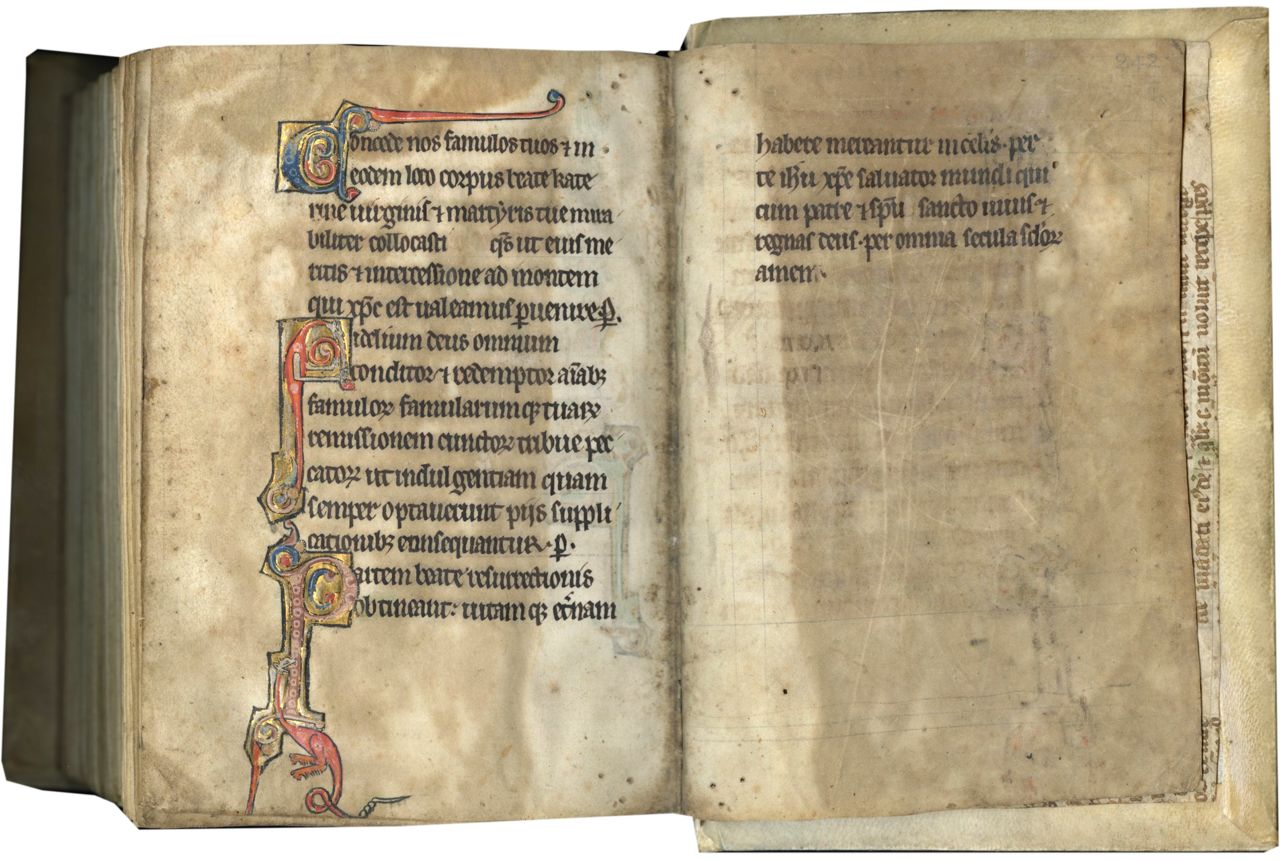 Concede nos famulos tuos ⁊ in
eodem loco corpus beate kate
rine uirginis ⁊ martyris tue mira
biliter collocasti qs̄ ut eius me
ritis ⁊ intercessione ad montem
qui xp̄c est ualeamus ꝑuenire. P̄.
Fidelium deus omnium
conditor ⁊ redemptor aīabꝫ
famuloꝝ famularumqꝫ tuaꝝ
remissionem cunctoꝝ tribue pec
catoꝝ ut indulgentiam quam
semper optauerunt pijs suppli
cationibꝫ consequantur. P̄.
Partem beate resurrectionis
obtineant: uitamqꝫ et̄nam
habere mereantur in celis. per
te ih̄u xp̄e saluator mundi qui
cum patre ⁊ sp̄u sancto uiuis ⁊
regnas deus. per omnia secula sc̄loꝝ
amen.
242